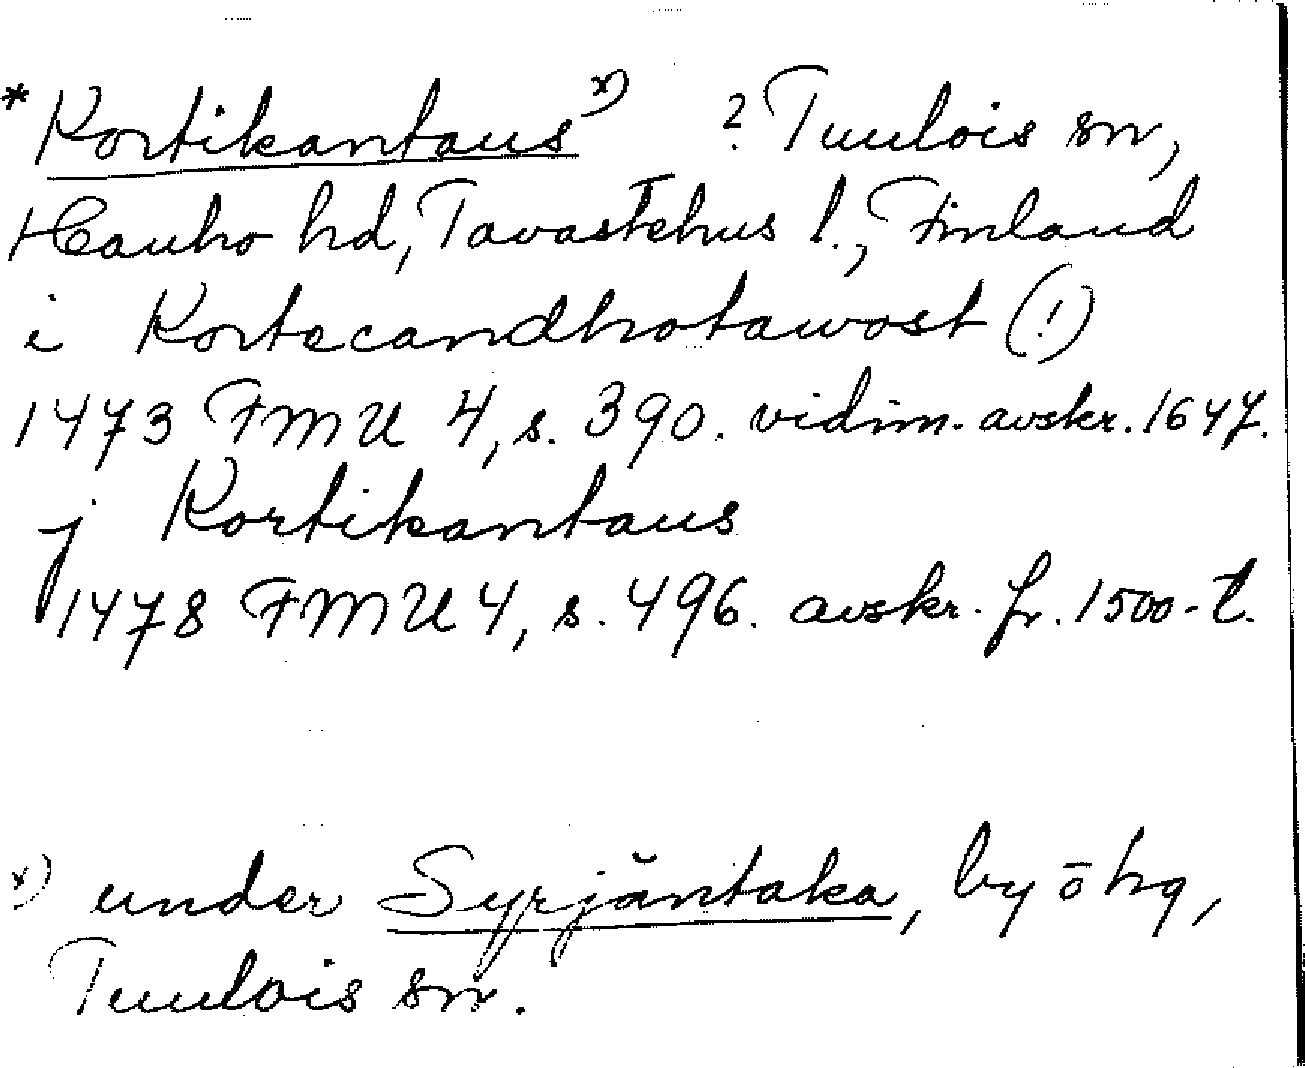 * Kortikantaus x) ? Tuulois sn,
Hauho hd, Tavastehus l., Finland
i Kortecandhotawost (!)
1473 FMU 4, s. 390. vidim. avskr. 1647.
j Kortikantaus
1478 FMU 4, s. 496. avskr. fr. 1500-t.
x) under Syrjäntaka, by o hg,
Tuulois sn.